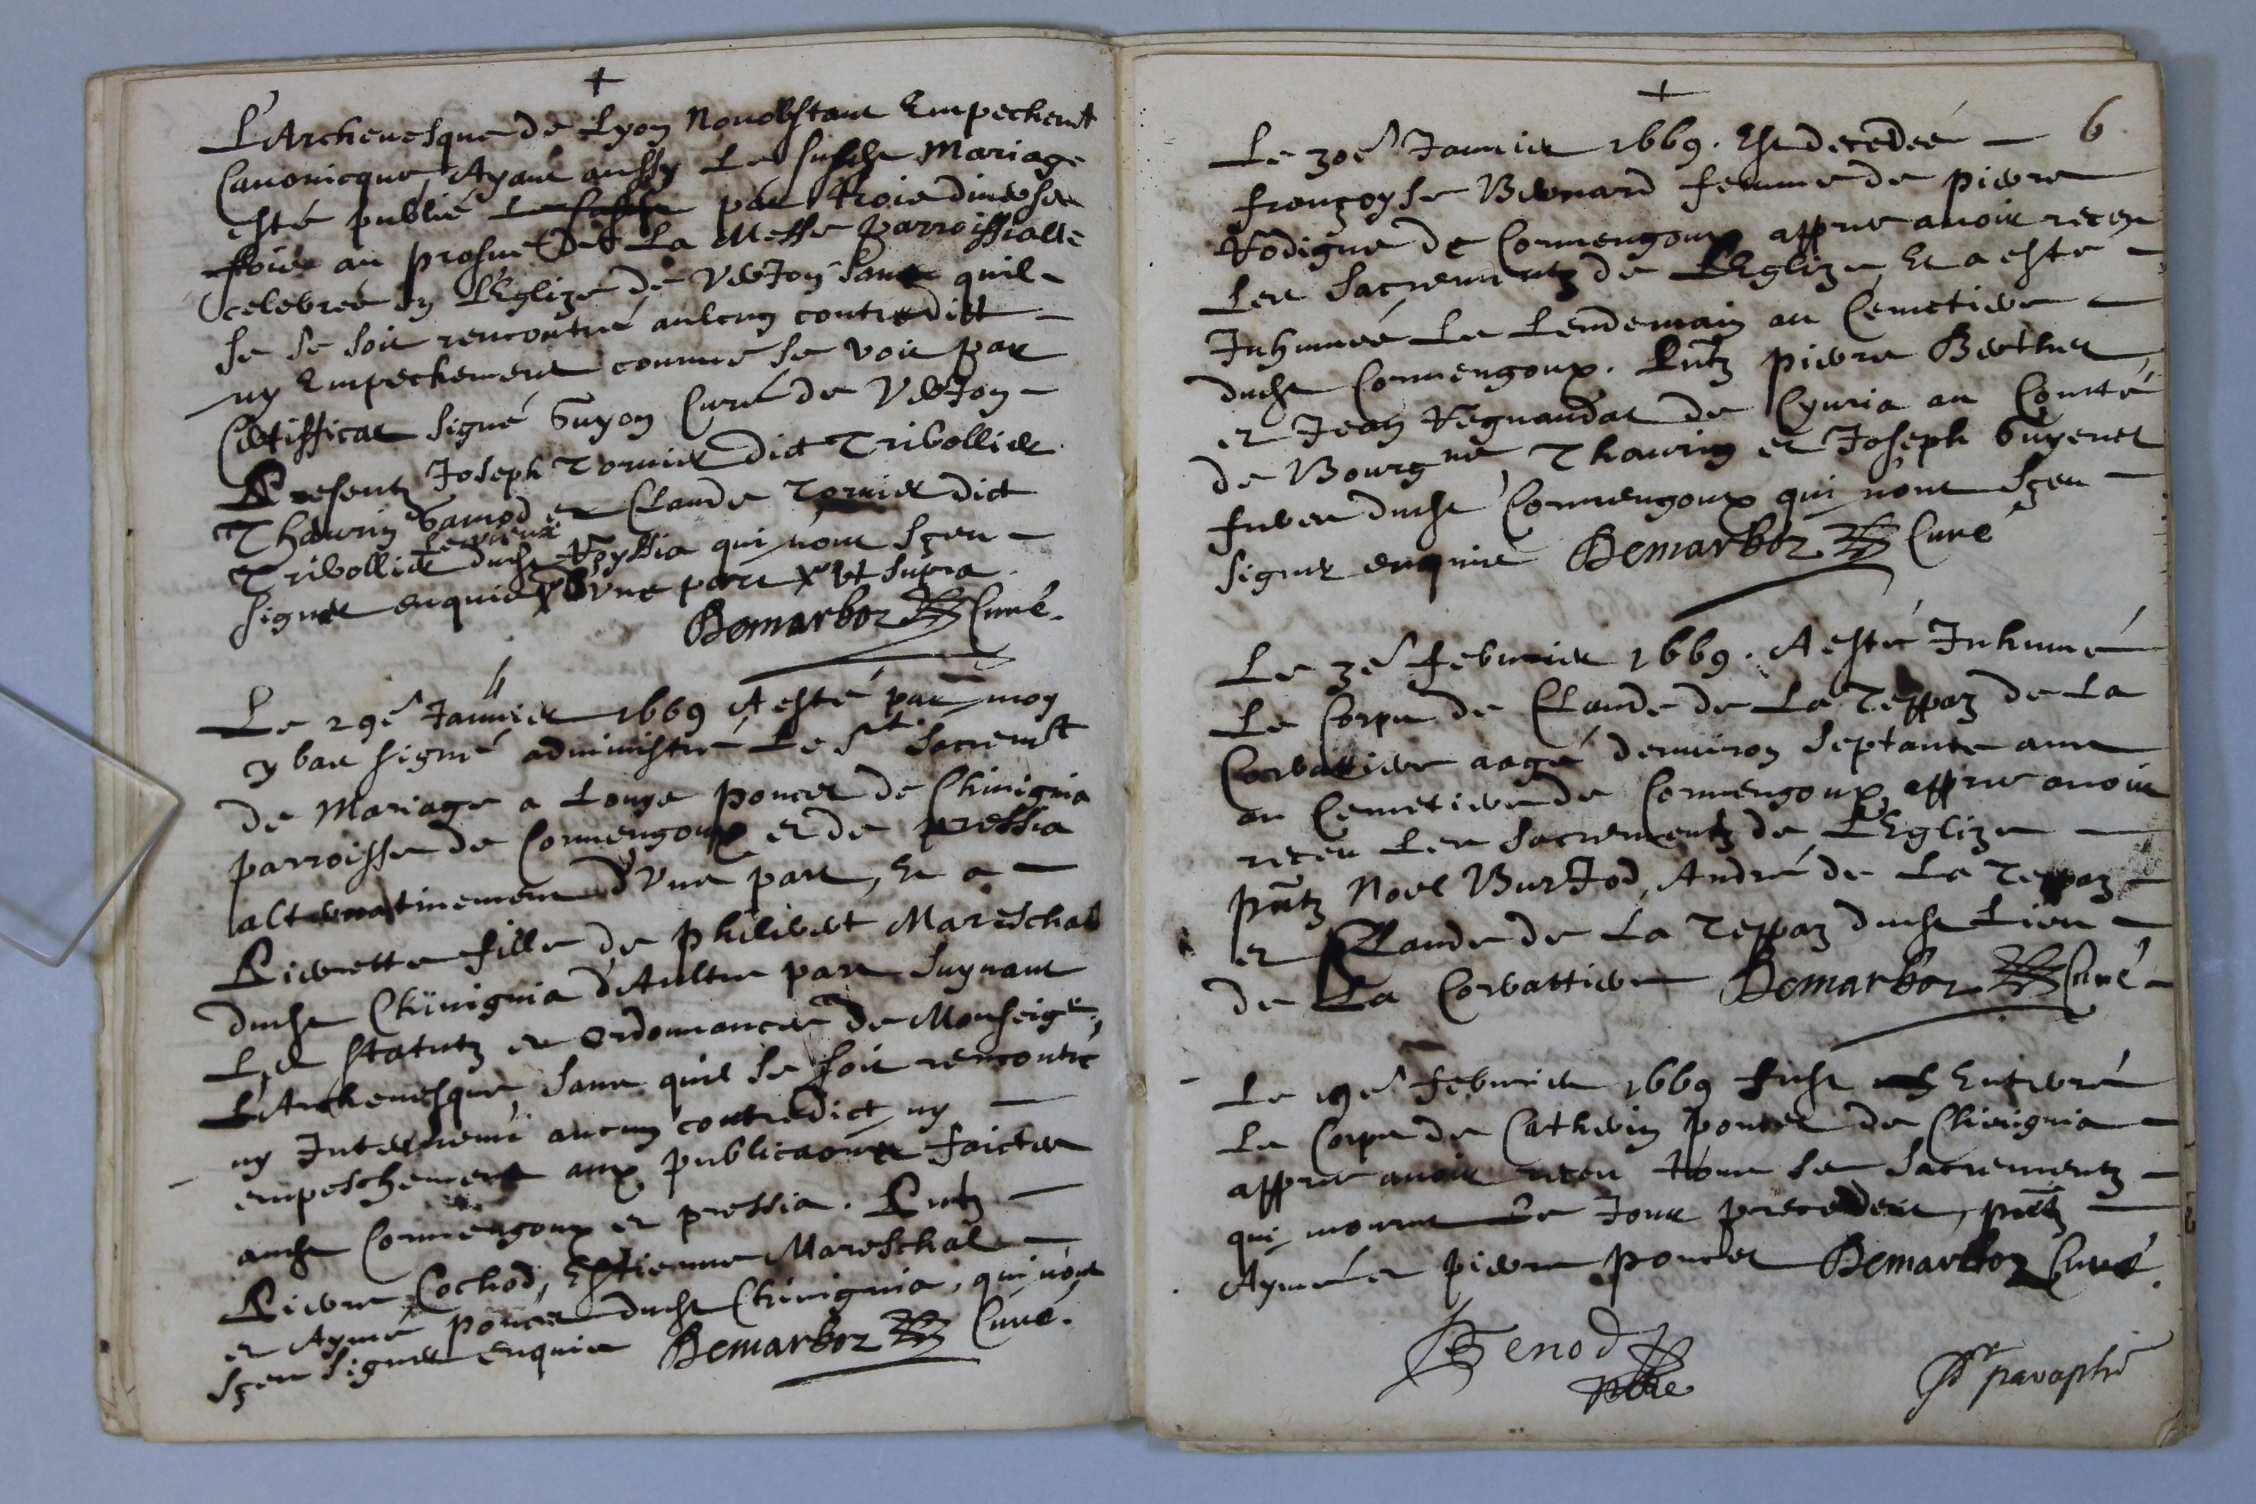 +
L'Archevesque de Lyon Nonobstant Empechemt
Canonicque, Ayant aussy Le susdt Mariage
esté publié Le susdt par trois diverses
fois au prosne de La Messe parroissialle
celebree en L'Eglize de Verjon sans quil
se se soit rencontré aulcun contredict
ny Empechement comme se voit par
Certifficat signé Guyon Curé de Verjon
Presentz Joseph Tornier dict Tribollier
Thaurin Gamod et Claude Tornier dict
Tribollier dudt Royssia qui n'ont sçeu
signer enquis d'vne part x vt supra
Demarboz Curé.
Le 29e Janvier 1669 A esté par moy
y bas signé administré Le St Sacremt
de Mariage a Louys Poncet de Chinignia
parroisse de Cormengoux et de pressia
alternatinement d'Vne part, Et a
Pierrette fille de Philibert Mareschal
dudt Chinignia d'Aultre part suyvant
Les statutz et ordonnances de Monseigr
L'Archevesque, sans quil se soit rencontré
ny Intervenu aucun contredict ny
empeschement aux publicaons faictes
audt Cormengoux et pressia. Pntz
Pierre Cochod, Estienne Mareschal
et Aymé Poncet dudt Chinignia, qui n'ont
sçeu signer enquis Demarboz Curé.
+
6
Le 30e Janvier 1669. Est decedeé
françoyse Bernard femme de pierre
Rodigue de Cormengoux appres avoir receu
Les Sacrementz de L'Eglize Et a esté
Inhumeé Le Lendemain au Cemetiere
dudt Cormengoux. Pntz pierre Berthet
et Jean Regnaudat de Cyuria au Comté
de Bourgne, Thaurin et Joseph Guyenet
freres dudt Cormengoux qui n'ont sçeu
signer enquis Demarboz Curé
Le 3e febvrier 1669. A esté Inhumé
Le Corps de Claude de La Teppaz de La
Corbattiere aagé denviron septante ans
au Cemetiere de Cormengoux appres avoir
receu Les Sacrementz de L'Eglize
pntz Noel Burjod, André de La Teppaz
et Claude de La Teppaz dudt Lieu
de La Corbattiere Demarboz Curé
Le 19e febvrier 1669 fust Enterré
Le Corps de Catherin Poncet de Chinignia
appres avoir receu tous se sacrementz
qui mourut Le Jour precedent, pntz
Aymé et pierre Poncet Demarboz Curé.
Genod
pbre
Pr paraphé